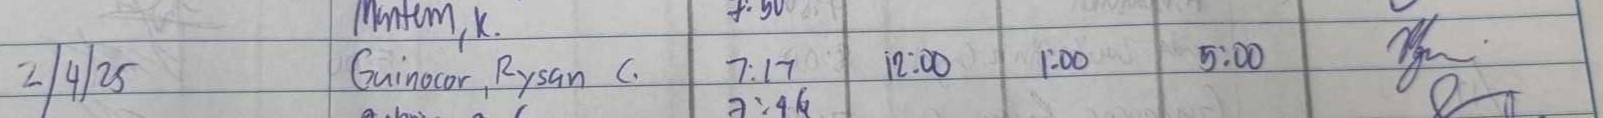 Mantem, K. 7:50
2/4/25 Guinocor, Rysan C. 7:17 12:00 1:00 5:00